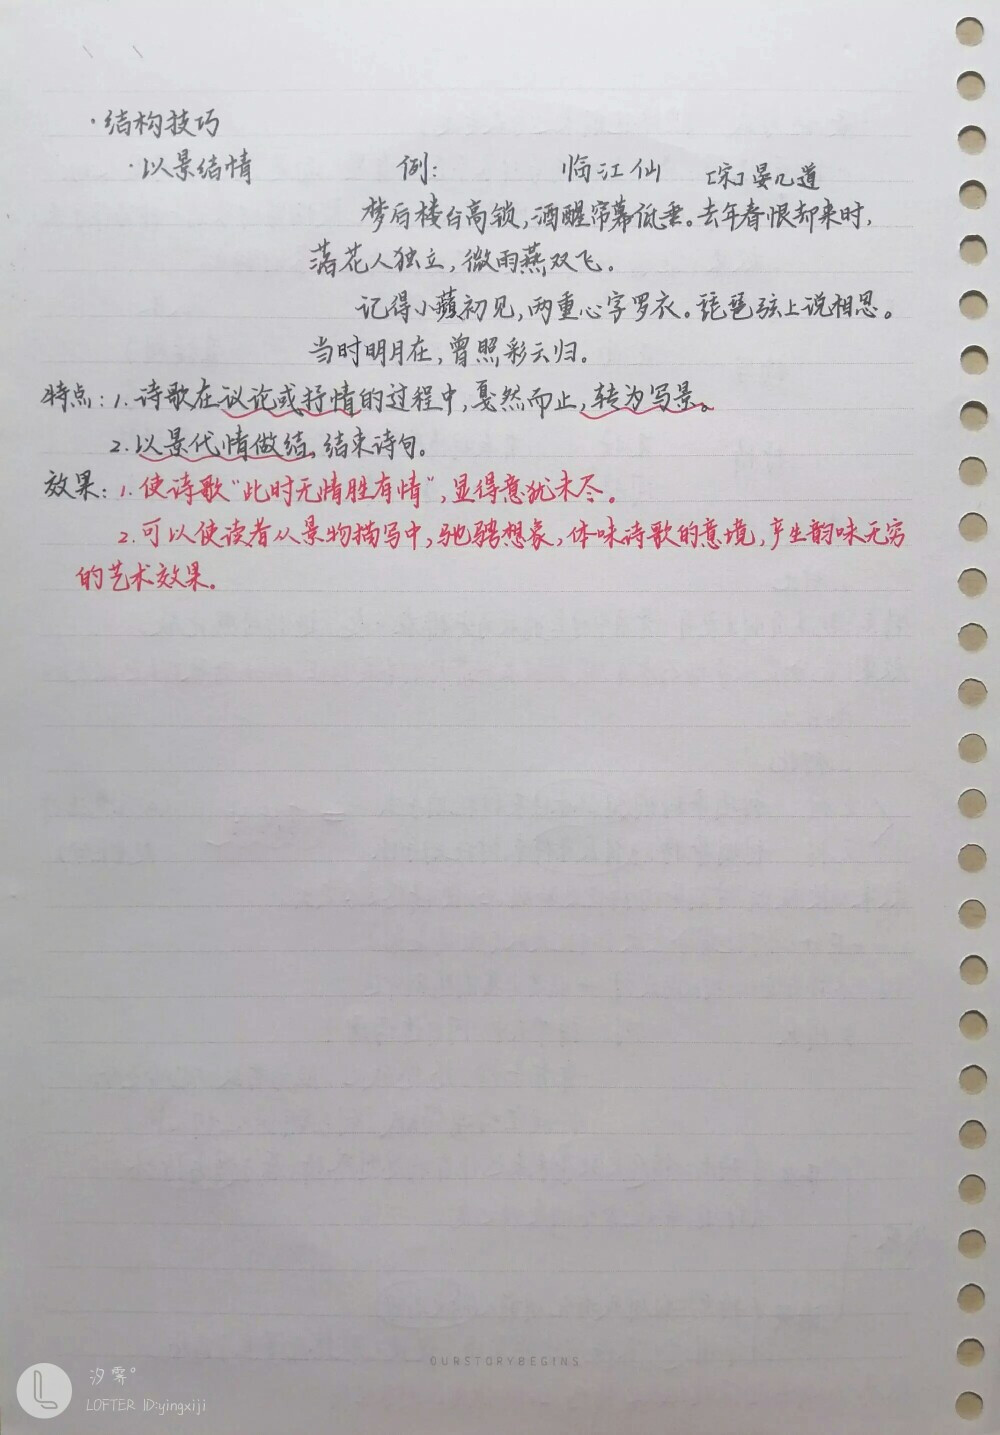 ·结构技巧
·以景结情 例: 临江仙 [宋]晏几道
梦后楼台高锁,酒醒帘幕低垂。去年春恨却来时,
落花人独立,微雨燕双飞。
记得小蘋初见,两重心字罗衣。琵琶弦上说相思。
当时明月在,曾照彩云归。
特点:1.诗歌在议论或抒情的过程中,戛然而止,转为写景。
2.以景代情做结,结束诗句。
效果:1.使诗歌“此时无情胜有情”,显得意犹未尽。
2.可以使读者从景物描写中,驰骋想象,体味诗歌的意境,产生韵味无穷
的艺术效果。
OURSTORYBEGINS
汐霁°
LOFTER ID:yingxiji